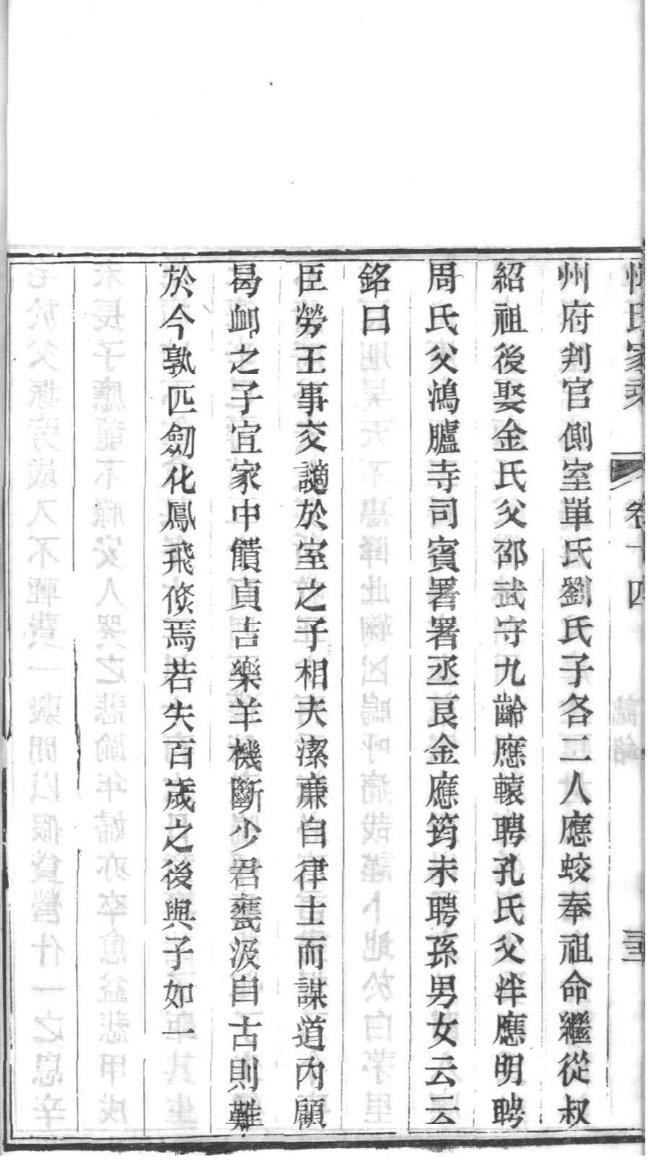 惲氏家乘 卷十四
州府判官側室單氏劉氏子各二人應蛟奉祖命繼從叔
紹祖後娶金氏父邵武守九齡應轅聘孔氏父泮應明聘
周氏父鴻臚寺司賓署署丞艮金應筠未聘孫男女云云
銘曰
臣勞王事交讁於室之子相夫潔亷自律士而謀道內顧
曷䘏之子宜家中饋貞吉樂羊機斷少君甕汲自古則難
於今孰匹劒化鳳飛倐焉若失百歲之後與子如一